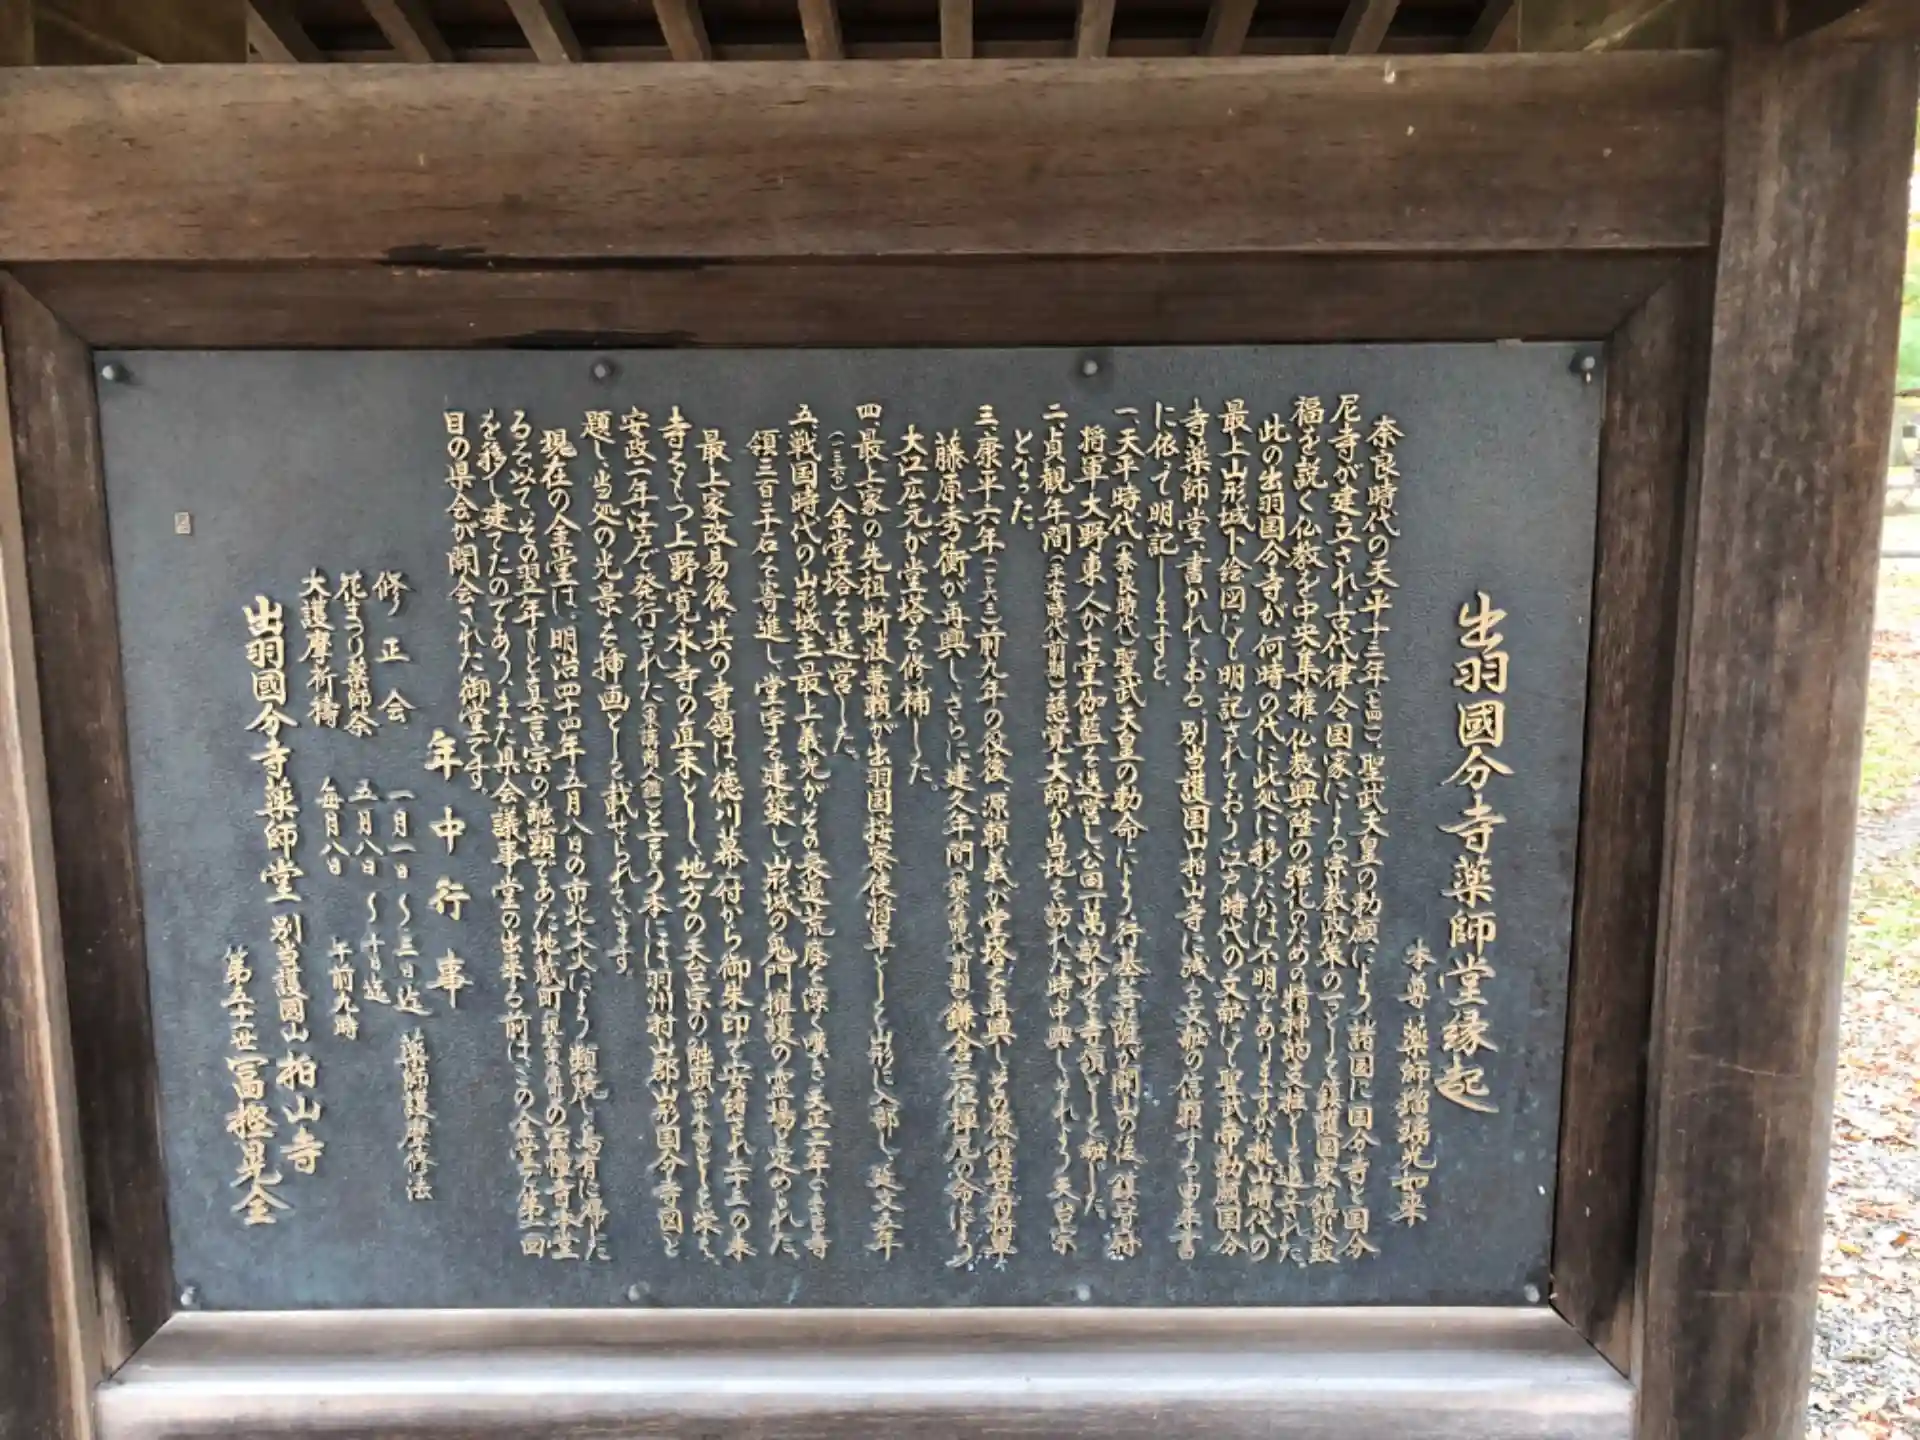 出羽國分寺薬師堂縁起
本尊 薬師瑠璃光如来
奈良時代の天平十三年(七四一)、聖武天皇の勅願により、諸国に国分寺と国分
尼寺が建立され古代律令国家による宗教政策の一つとして鎮護国家、鎮災致
福を説く仏教を中央集権、仏教興隆の強化のための精神的支柱として造立された
此の出羽国分寺が何時の代に此処に移ったかは不明でありますが、桃山時代の
最上山形城下絵図にも明記されており、江戸時代の文献にも聖武帝勅願国分
寺薬師堂と書かれておる。別当護国山柏山寺に残る文献の信頼する由来書
に依って明記しますと、
一、天平時代(奈良時代)聖武天皇の勅命により、行基菩薩が開山の後、鎮守府
将軍大野東人が七堂伽藍を造営し公田一萬歩を寺領として献じた。
二、貞観年間(平安時代前期)慈覚大師が当地を訪れた時中興しこれより天台宗
となった。
三、康平六年(一〇六三)前九年の役後、源頼義が堂塔を再興しその後鎮守府将軍
藤原秀衡が再興し、さらに建久年間(鎌倉時代前期)鎌倉二位禅尼の命により
大江広元が堂塔を修補した。
四、最上家の先祖斯波兼頼が出羽国按察使将軍として山形に入部し、延文五年
(一三六〇)金堂塔を造営した。
五、戦国時代の山形城主最上義光がその衰退荒廃を深く嘆き天正二年
領三百二十石を寄進し、堂宇を建築し、山形城の鬼門擁護の霊場と定められた。
最上家改易後、其の寺領は徳川幕府から御朱印で安堵され二十三の末
寺をもつ上野寛永寺の直末とし、地方の天台宗の触頭として栄え、
安政二年江戸で発行された(東講商人鑑)と言う本には羽州村山郡山形国分寺図と
題し、当処の光景を挿画として載せられています。
現在の金堂は、明治四十四年五月八日の市北大火により類焼し烏有に帰した
るを以て、その翌年もと真言宗の触頭であった地蔵町の宝幢寺本堂
を移し建てたのであり、また県会議事堂の出来る前はこの金堂で第一回
目の県会が開会された御堂です。
年中行事
修正会 一月一日〜三日迄 薬師護摩修法
花まつり薬師祭 五月八日〜十日迄
大護摩祈祷 毎月八日 午前九時
出羽國分寺薬師堂 別当護國山柏山寺
第五十一世 富樫晃全